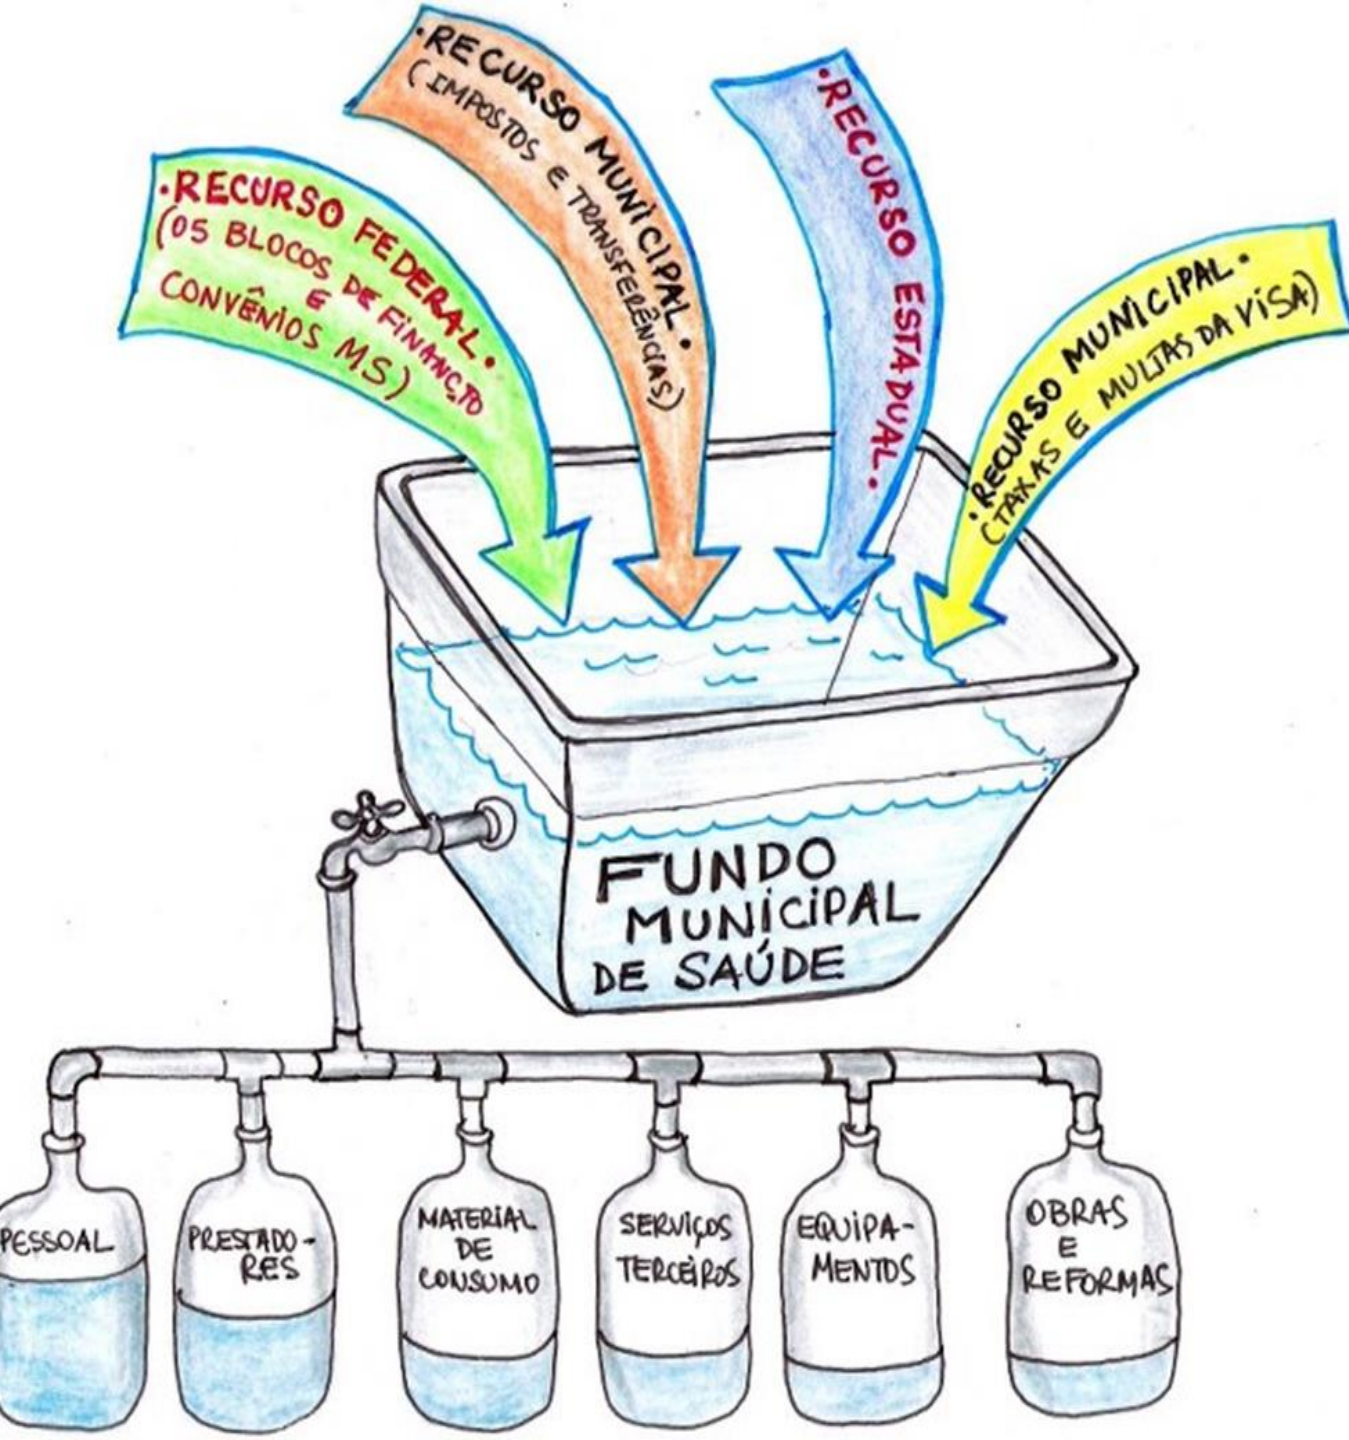 •RECURSO FEDERAL•
(05 BLOCOS DE FINANÇTO
E
CONVÊNIOS MS)
•RECURSO MUNICIPAL•
(IMPOSTOS E TRANSFERÊNCIAS)
•RECURSO ESTADUAL•
•RECURSO MUNICIPAL•
(TAXAS E MULTAS DA VISA)
FUNDO
MUNICIPAL
DE SAÚDE
PESSOAL
PRESTADO-
RES
MATERIAL
DE
CONSUMO
SERVIÇOS
TERCEIROS
EQUIPA-
MENTOS
OBRAS
E
REFORMAS